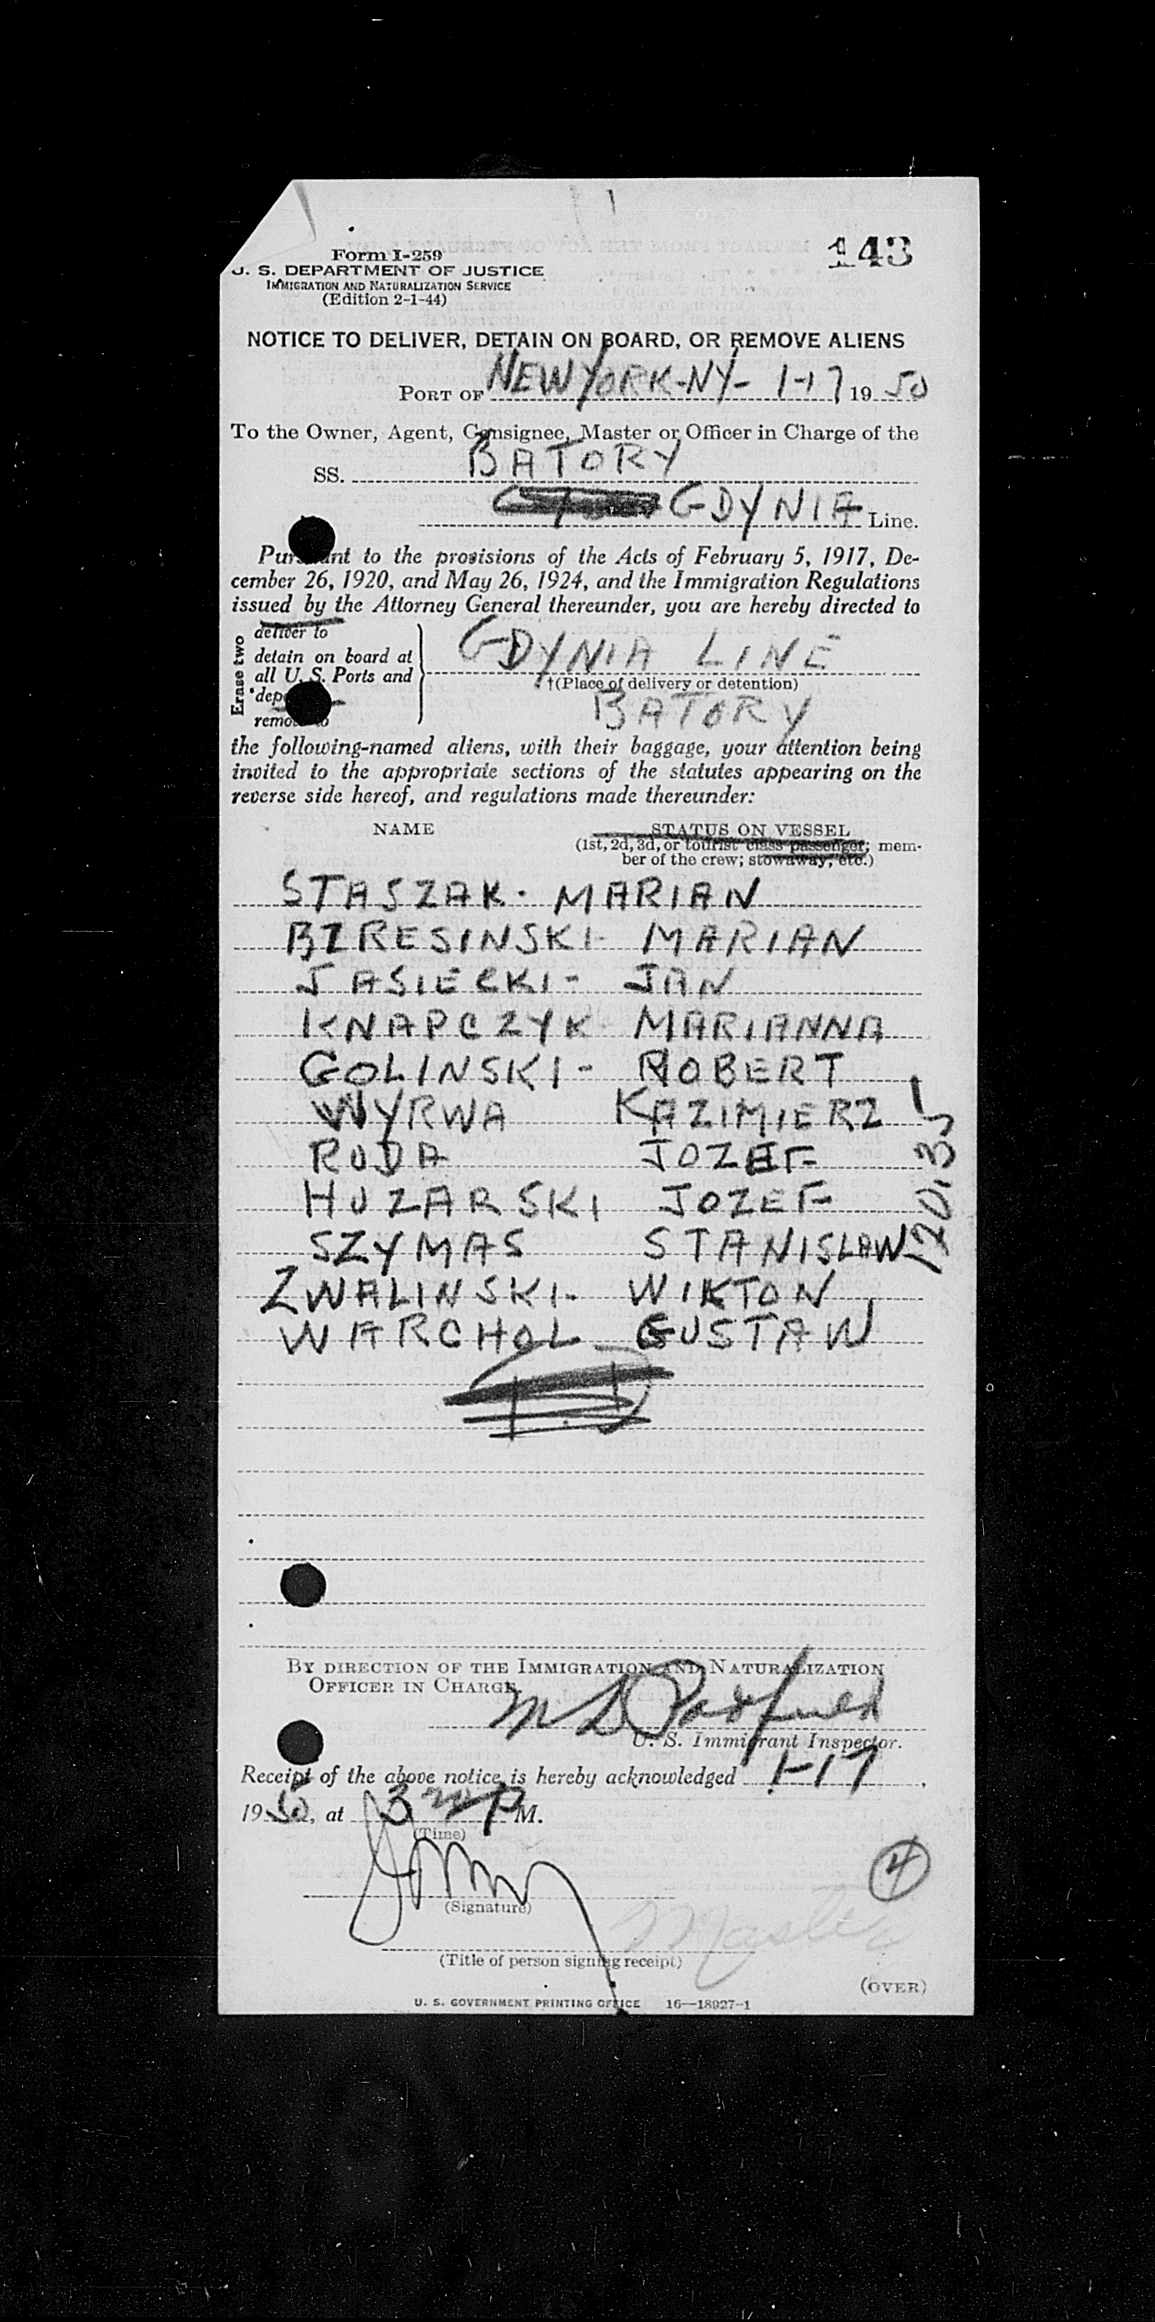 143
Form I-259
U. S. DEPARTMENT OF JUSTICE
IMMIGRATION AND NATURALIZATION SERVICE
(Edition 2-1-44)
NOTICE TO DELIVER, DETAIN ON BOARD, OR REMOVE ALIENS
PORT OF NEW YORK-NY- 1-17 1950
To the Owner, Agent, Consignee, Master or Officer in Charge of the
SS. BATORY
GDYNIA Line.
Pursuant to the provisions of the Acts of February 5, 1917, De-
cember 26, 1920, and May 26, 1924, and the Immigration Regulations
issued by the Attorney General thereunder, you are hereby directed to
Erase two
deliver to
detain on board at
all U. S. Ports and
remove to
GDYNIA LINE
†(Place of delivery or detention)
BATORY
the following-named aliens, with their baggage, your attention being
invited to the appropriate sections of the statutes appearing on the
reverse side hereof, and regulations made thereunder:
NAME STATUS ON VESSEL
(1st, 2d, 3d, or tourist class passenger; mem-
ber of the crew; stowaway, etc.)
STASZAK - MARIAN
BZRESINSKI - MARIAN
JASIECKI - JAN
KNAPCZYK MARIANNA
GOLINSKI - ROBERT
WYRWA KAZIMIERZ
RUDA JOZEF
HUZARSKI JOZEF
SZYMAS STANISLAW
ZWALINSKI - WIKTON
WARCHOL GUSTAW
BY DIRECTION OF THE IMMIGRATION AND NATURALIZATION
OFFICER IN CHARGE
U. S. Immigrant Inspector.
Receipt of the above notice is hereby acknowledged 1-17,
1950, at 3 P M.
(Time)
4
(Signature)
Master
(Title of person signing receipt)
(OVER)
U. S. GOVERNMENT PRINTING OFFICE 16—18927-1